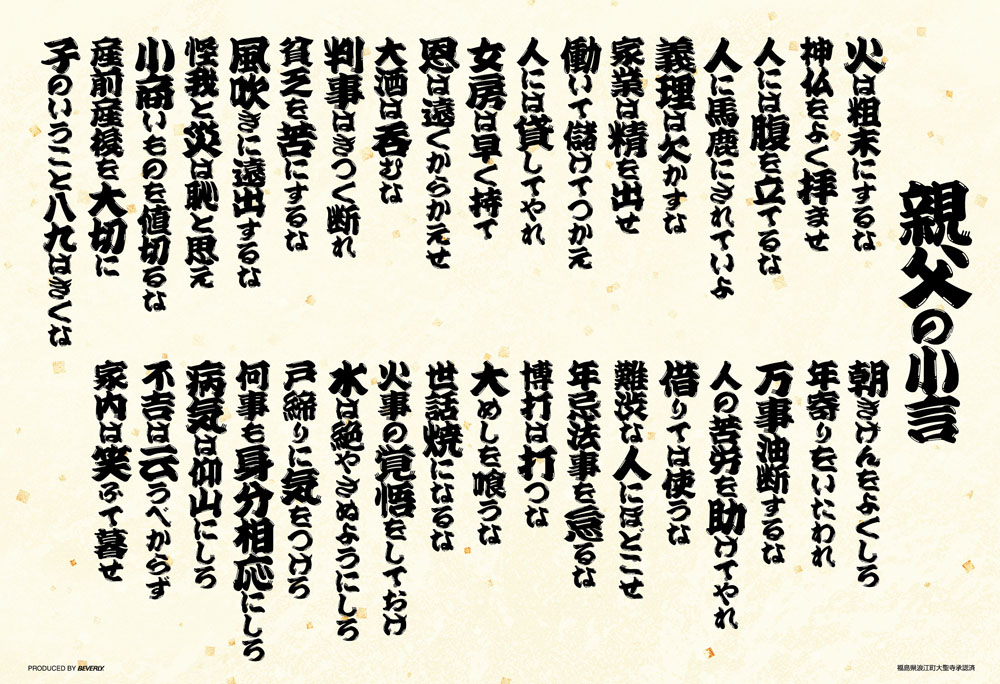 親父の小言
火は粗末にするな
神仏をよく拝ませ
人には腹を立てるな
人に馬鹿にされていよ
義理は欠かすな
家業は精を出せ
働いて儲けてつかえ
人には貸してやれ
女房は早く持て
恩は遠くからかえせ
大酒は呑むな
判事はきつく断れ
貧乏を苦にするな
風吹きに遠出するな
怪我と災は恥と思え
小商いものを値切るな
産前産後を大切に
子のいうこと八九はきくな
朝きげんをよくしろ
年寄りをいたわれ
万事油断するな
人の苦労を助けてやれ
借りては使うな
難渋な人にほどこせ
年忌法事を怠るな
博打は打つな
大めしを喰うな
世話焼になるな
火事の覚悟をしておけ
水は絶やさぬようにしろ
戸締りに気をつけろ
何事も身分相応にしろ
病気は仰山にしろ
不吉は云うべからず
家内は笑ふて暮せ
PRODUCED BY BEVERLY.
福島県浪江町大聖寺承認済